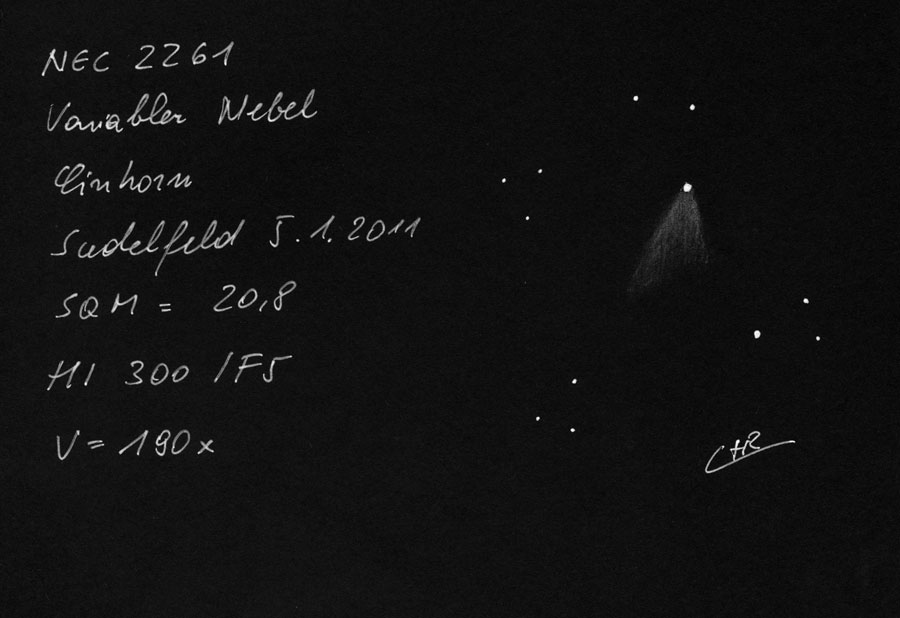 NEC 2261
Variabler Nebel
Einhorn
Sudelfeld 5.1.2011
SQM = 20,8
HI 300 /F5
V = 190x